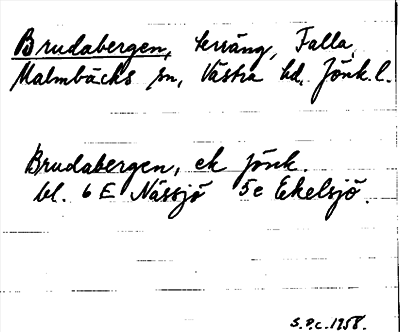 Brudabergen, terräng, Falla,
Malmbäcks sn, Västra hd, Jönk. l.
Brudabergen, ek Jönk.
bl. 6 E Nässjö 5e Ekelsjö.
S.P.C. 1958.